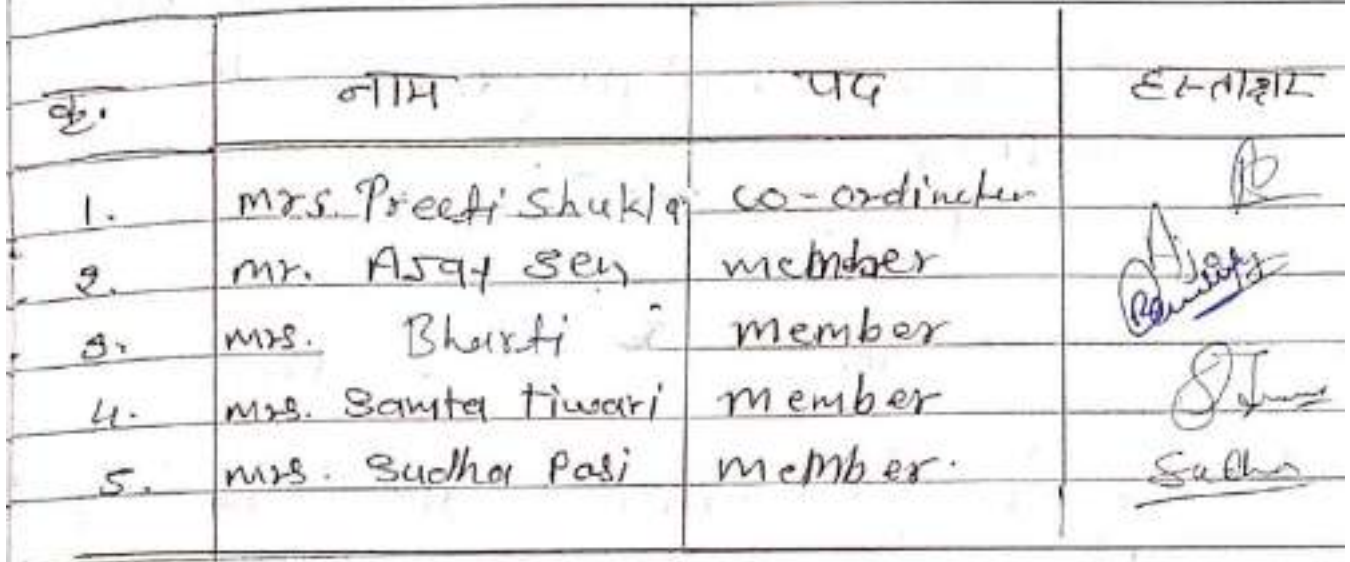 क्र. नाम पद हस्ताक्षर
1. mrs. Preeti Shukla co-ordinator
2. mr. Ajay Sen member Ajay
3. mrs. Bharti member
4. mrs. Samta tiwari member
5. mrs. Sudha Pasi member. Sudha